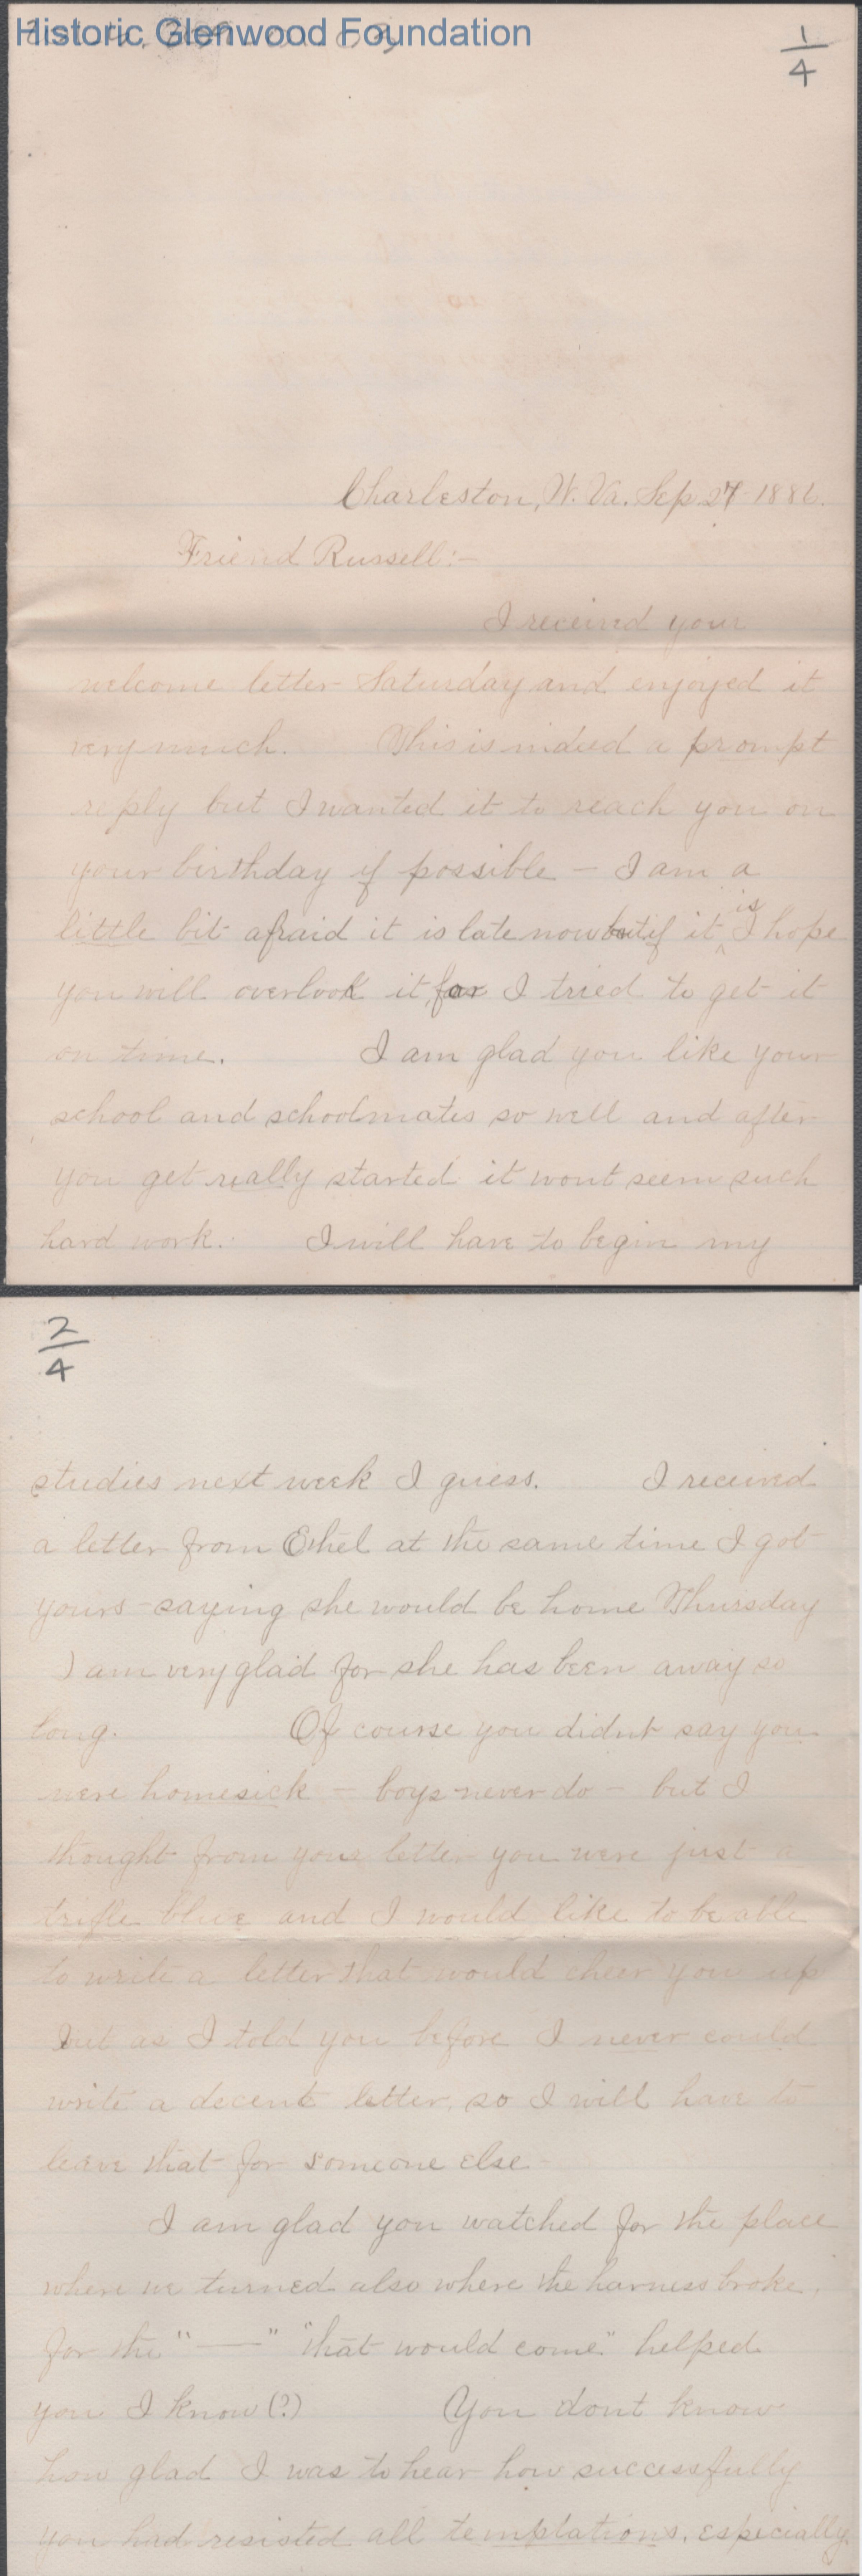 Historic Glenwood Foundation
1/4
Charleston, W. Va. Sep. 27 1886.
Friend Russell:-
I received your
welcome letter Saturday and enjoyed it
very much. This is indeed a prompt
reply but I wanted it to reach you on
your birthday if possible - I am a
little bit afraid it is late now but if it is I hope
you will overlook it for I tried to get it
on time. I am glad you like your
school and schoolmates so well and after
you get really started it wont seem such
hard work. I will have to begin my
2/4
studies next week I guess. I received
a letter from Ethel at the same time I got
yours saying she would be home Thursday
I am very glad for she has been away so
long. Of course you didnt say you
were homesick - boys never do - but I
thought from your letter you were just a
trifle blue and I would like to be able
to write a letter that would cheer you up
but as I told you before I never could
write a decent letter, so I will have to
leave that for someone else -
I am glad you watched for the place
where we turned also where the harness broke,
for the "—" "that would come" helped
you I know (?) You dont know
how glad I was to hear how successfully
you had resisted all temptations, especially